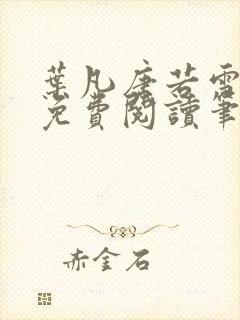 葉凡唐若雪
免費閱讀筆
赤金石